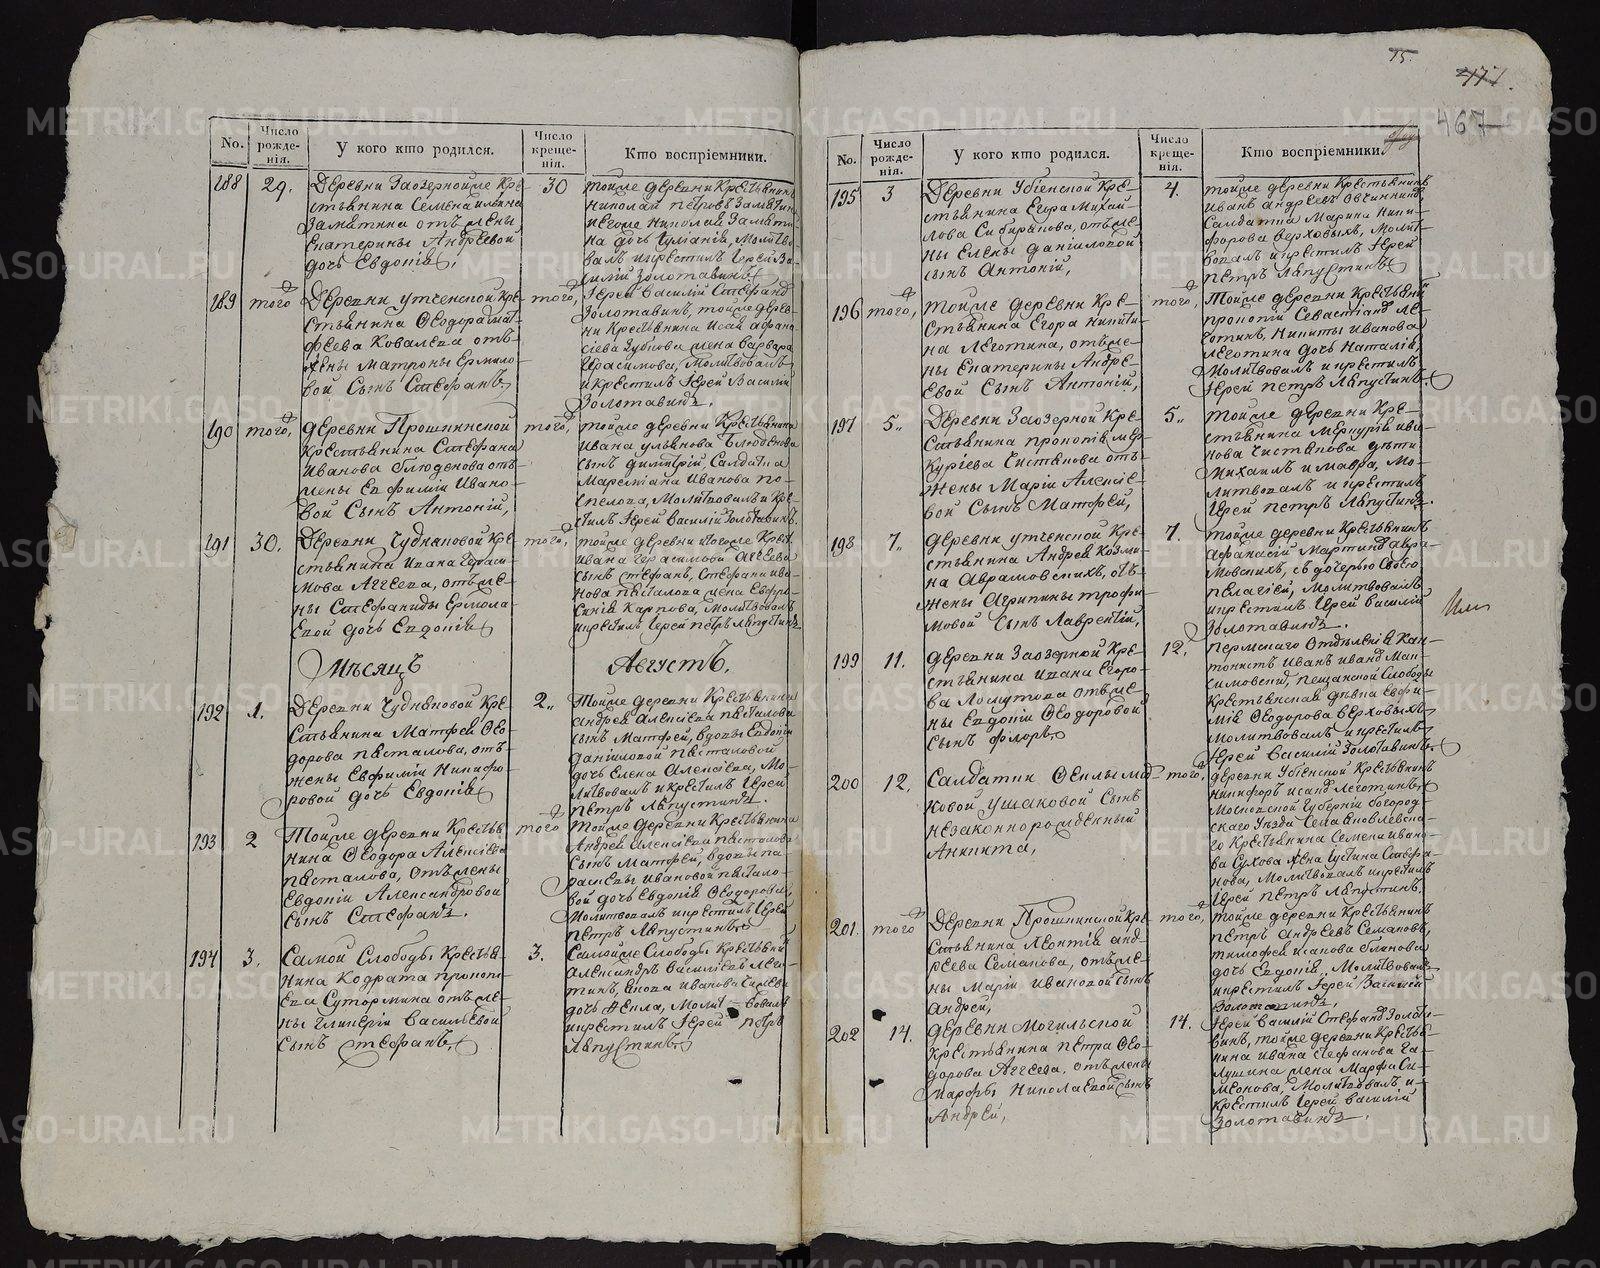 No.
Число рожде-нія.
У кого кто родился.
Число креще-нія.
Кто воспріемники.
188
29.
Деревни Заозерной Кре-
стьянина Семена
Замятина отъ жены
Екатерины Андреевой
дочь Евдокія,
30
тойже деревни Крестьянинъ
Николай Петровъ Замятинъ
Николая Замяти-
на дочь Молитво-
валъ и крестилъ Іерей Ва-
силій Золотавинъ
189
того
Деревни Утченской Кре-
стьянина Ѳеодора Мат-
феева Ковалева отъ
жены Матроны Ермило-
вой Сынъ Стефанъ,
того,
Іерей Василій Стефановъ
Золотавинъ, тойже дерев-
ни Крестьянина Исая Афана-
сіева Зубкова жена Варвара
Герасимова, Молитвовалъ
и Крестилъ Іерей Василій
Золотавинъ.
190
того,
деревни Прошкинской
Крестьянина Стефана
Иванова Блюденова отъ
жены Евфиміи Ивано-
вой Сынъ Антоній,
того,
тойже деревни Крестьянина
Ивана Ульянова Блюденова
сынъ Димитрій, Салдатка
Иванова По-
спелова, Молитвовалъ и Кре-
стилъ Іерей Василій Золотавинъ.
191
30.
Деревни Чудиновой Кре-
стьянина Ивана Гераси-
мова Аггеева, отъ же-
ны Стефаниды Ермола-
евой дочь Евдокія
того,
Ивана Герасимова Аггеева
сынъ Стефанъ, Стефана Ива-
нова Песталова жена Евфро-
синія Карпова, Молитвовалъ
и крестилъ Іерей Петръ Ляпустинъ
Мѣсяцъ
Августъ.
192
1.
Деревни Чудиновой Кре-
стьянина Матфея Ѳео-
дорова Песталова, отъ
жены Евфиміи Никифо-
ровой дочь Евдокія
2.
Тойже деревни Крестьянина
Андрея Алексіева Песталова
сынъ Матфей, вдовы Евдокіи
Даніиловой Песталовой
дочь Елена Алексіева, Мо-
литвовалъ и крестилъ Іерей
Петръ Ляпустинъ.
193
2
Тойже деревни Крестья-
нина Ѳеодора Алексіева
Песталова, отъ жены
Евдокіи Александровой
сынъ Стефанъ.
того
Тойже деревни Крестьянина
Андрея Алексіева Песталова
Сынъ Матфей, вдовы Па-
раскевы Ивановой Пестало-
вой дочь Евдокія Ѳеодорова,
Молитвовалъ и крестилъ Іерей
Петръ Ляпустинъ
194
3.
Самой Слободы Крестья-
нина Кодрата Прокопи-
ева Сутормина отъ же-
ны Гликеріи Васильевой
Сынъ Стефанъ,
3.
Самойже Слободы Крестьянинъ
Александръ Василіевъ
Иванова
дочь Ѳекла, Молитвовалъ
и крестилъ Іерей Петръ
Ляпустинъ
75.
477.
467
No.
Число рожде-нія.
У кого кто родился.
Число креще-нія.
Кто воспріемники.
195
3
Деревни Убіенской Кре-
стьянина Егора Михай-
лова Сибирякова, отъ же-
ны Елены Даніиловой
сынъ Антоній,
4.
тойже деревни Крестьянинъ
Иванъ Андреевъ Овчинниковъ,
Салдатка Марина Ники-
форова Верховыхъ, Молит-
вовалъ и крестилъ Іерей
Петръ Ляпустинъ
196
того,
Тойже деревни Кре-
стьянина Егора Никити-
на Леготина, отъ же-
ны Екатерины Андре-
евой Сынъ Антоній,
того,
Тойже деревни Крестьянинъ
Прокопій Севастіановъ Ле-
готинъ, Никиты Иванова
Леготина дочь Наталія,
Молитвовалъ и крестилъ
Іерей Петръ Ляпустинъ.
197
5.
Деревни Заозерной Кре-
стьянина Прокопія Мер-
куріева Чистякова отъ
жены Маріи Алексіе-
вой Сынъ Матфей,
5.
Тойже деревни Кре-
стьянина Меркурія Ива-
нова Чистякова дѣти
Михаилъ и Мавра, Мо-
литвовалъ и крестилъ
Іерей Петръ Ляпустинъ.
198
7.
деревни Утченской Кре-
стьянина Андрея Козми-
на Аврамовскихъ, отъ
жены Агрипины Трофи-
мовой Сынъ Лаврентій,
7.
тойже деревни Крестьянинъ
Афанасій Мартиновъ Авра-
мовскихъ, съ дочерью своею
Пелагіей, Молитвовалъ
и крестилъ Іерей Василій
Золотавинъ.
199
11.
деревни Заозерной Кре-
стьянина Ивана Егоро-
ва Лоскутова отъ же-
ны Евдокіи Ѳеодоровой
Сынъ Флоръ,
12.
Пермскаго Отдѣленія Кан-
тонистъ Иванъ Ивановъ Мак-
симовский, Пещанской Слободы
Крестьянская дѣвка Евфи-
мія Ѳеодорова Верховыхъ
Молитвовалъ и крестилъ
Іерей Василій Золотавинъ.
200
12.
Салдатки Ѳеклы
Ушаковой Сынъ
незаконнорожденный
Аникита,
того,
деревни Убіенской Крестьянинъ
Никифоръ Исаковъ Леготинъ,
Московской Губерніи Богород-
скаго Уѣзда Села Яковлевска-
го Крестьянина Семена Ивано-
ва Сухова жена Устина Стефа-
нова, Молитвовалъ и крестилъ
Іерей Петръ Ляпустинъ.
201.
того
Деревни Прошкинской Кре-
стьянина Леонтія Анд-
реева Семакова, отъ же-
ны Маріи Ивановой Сынъ
Андрей,
того,
тойже деревни Крестьянинъ
Петръ Андреевъ Семаковъ,
Тимофея Исакова Блинова
дочь Евдокія, Молитвовалъ
и крестилъ Іерей Василій
Золотавинъ.
202
14.
деревни Могильской
Крестьянина Петра Ѳео-
дорова Аггеева, отъ жены
Марфы Николаевой Сынъ
Андрей,
14.
Іерей Василій Стефановъ Золота-
винъ, тойже деревни Крестья-
нина Ивана Стефанова Га-
лушина жена Марфа Си-
меонова, Молитвовалъ и
крестилъ Іерей Василій
Золотавинъ.